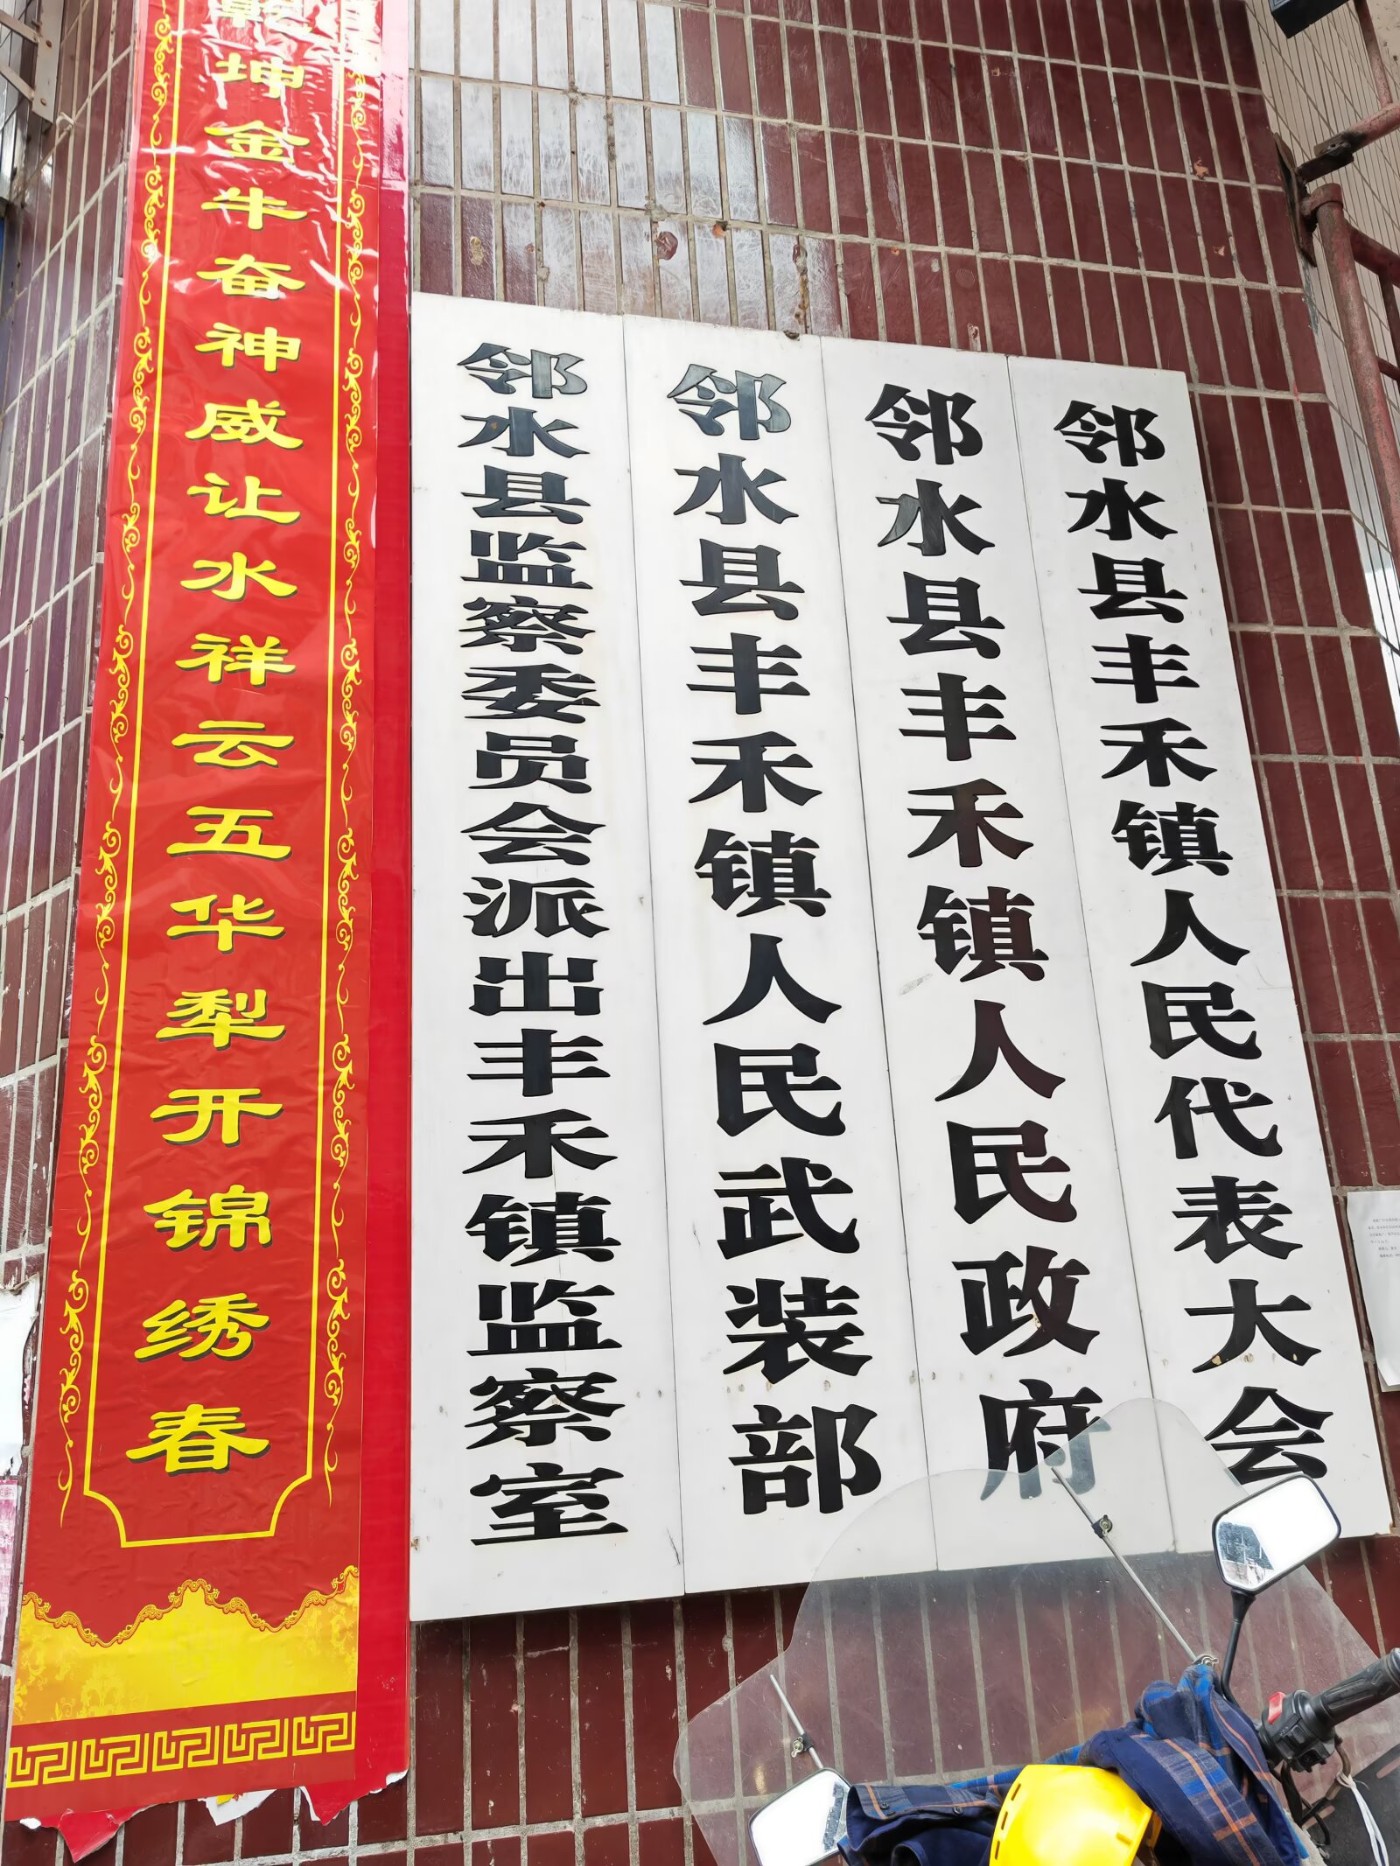 乾坤金牛奋神威让水祥云五华犁开锦绣春
邻水县监察委员会派出丰禾镇监察室
邻水县丰禾镇人民武装部
邻水县丰禾镇人民政府
邻水县丰禾镇人民代表大会